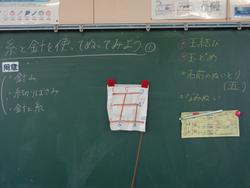 糸と針を使ってぬってみよう①
用意
・針山
・糸切りばさみ
・針と糸
・玉結び
・玉どめ
・名前のぬいとり
・なみぬい